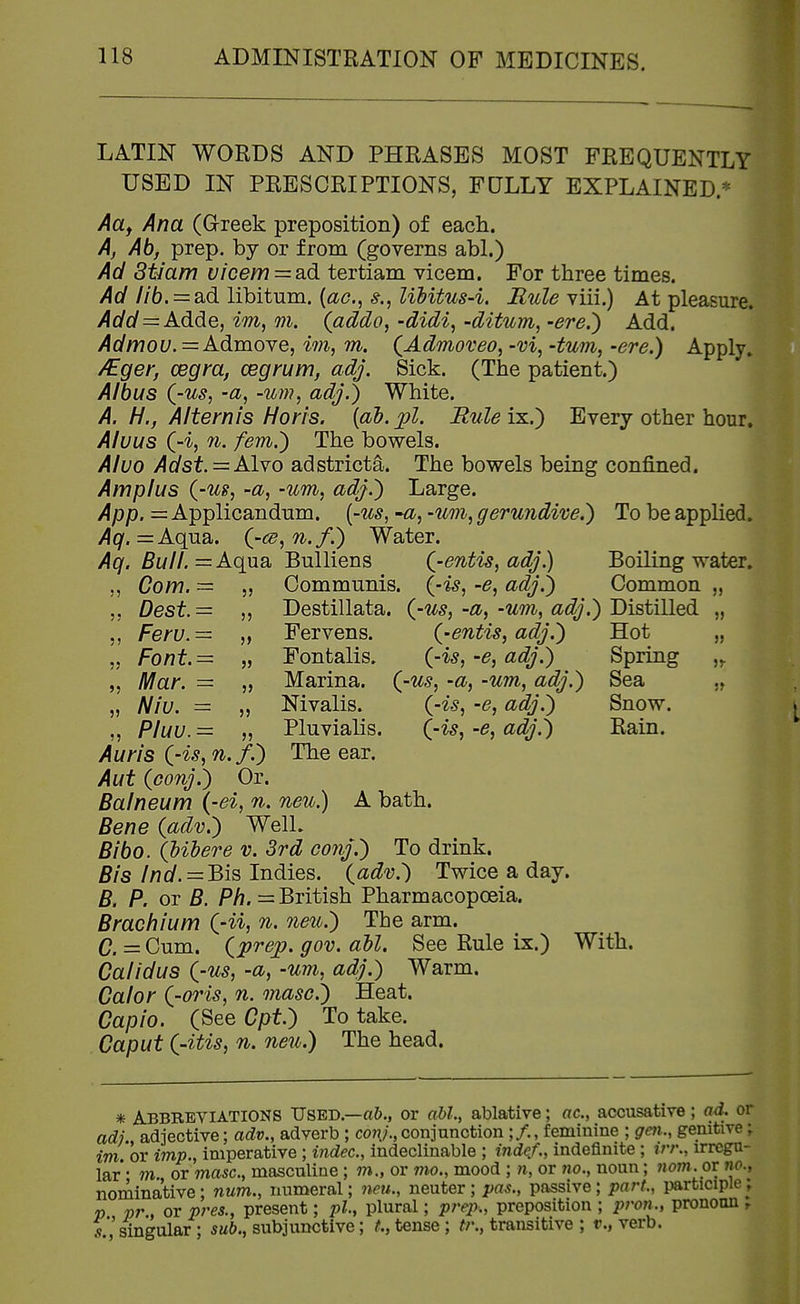 118 ADMINISTRATION OF MEDICINES.
LATIN WORDS AND PHRASES MOST FREQUENTLY
USED IN PRESCRIPTIONS, FULLY EXPLAINED.*
Aa, Ana (Greek preposition) of each.
A, Ab, prep. by or from (governs abl.)
Ad 3tiam vicem = ad tertiam vicem. For three times.
Ad lib. = ad libitum. (ac., s., libitus-i. Rule viii.) At pleasure.
Add = Adde, im, m. (addo, -didi, -ditum, -ere.) Add.
Admov. = Admove, im, m. (Admoveo, -vi, -tum, -ere.) Apply.
Æger, œgra, œgrum, adj. Sick. (The patient.)
Albus (-us, -a, -um, adj.) White.
A. H., Alternis Horis. (ab. pl. Rule ix.) Every other hour.
Alvus (-i, n. fem.) The bowels.
Alvo Adst. = Alvo adstrictâ. The bowels being confined.
Amplus (-us, -a, -um, adj.) Large.
App. = Applicandum. (-us, -a, -um, gerundive.) To be applied.
Aq. = Aqua. (-œ, n. f.) Water.
Aq. Bull. = Aqua Bulliens (-entis, adj.) Boiling water.
„ Com. = „ Communis. (-is, -e, adj.) Common „
„ Dest. = „ Destillata. (-us, -a, -um, adj.) Distilled „
„ Ferv. = „ Fervens. (-entis, adj.) Hot „
„ Font. = „ Fontalis. (-is, -e, adj.) Spring „
„ Mar. = „ Marina. (-us, -a, -um, adj.) Sea „
„ Niv. = „ Nivalis. (-is, -e, adj.) Snow.
„ Pluv. = „ Pluvialis. (-is, -e, adj.) Rain.
Auris (-is, n. f.) The ear.
Aut (conj.) Or.
Balneum (-ei, n. neu.) A bath.
Bene (adv.) Well.
Bibo. (bibere v. 3rd conj.) To drink.
Bis Ind. = Bis Indies. (adv.) Twice a day.
B. P. or B. Ph. = British Pharmacopœia.
Brachium (-ii, n. neu.) The arm.
C. = Cum. (prep. gov. abl. See Rule ix.) With.
Calidus (-us, -a, -um, adj.) Warm.
Calor (-oris, n. masc.) Heat.
Capio. (See Cpt.) To take.
Caput (-itis, n. neu.) The head.
* ABBREVIATIONS USED.—ab., or abl., ablative; ac., accusative; ad. or
adj., adjective; adv., adverb; conj., conjunction; f., feminine; gen., genitive;
im. or imp., imperative; indec., indeclinable; indef., indefinite; irr., irregu-
lar; m., or masc., masculine; m., or mo., mood; n, or no., noun; nom. or no.,
nominative; num., numeral; neu., neuter; pas., passive; part., participle;
p., pr., or pres., present; pl., plural; prep., preposition; pron., pronoun;
s., singular; sub., subjunctive; t., tense; tr., transitive; v., verb.